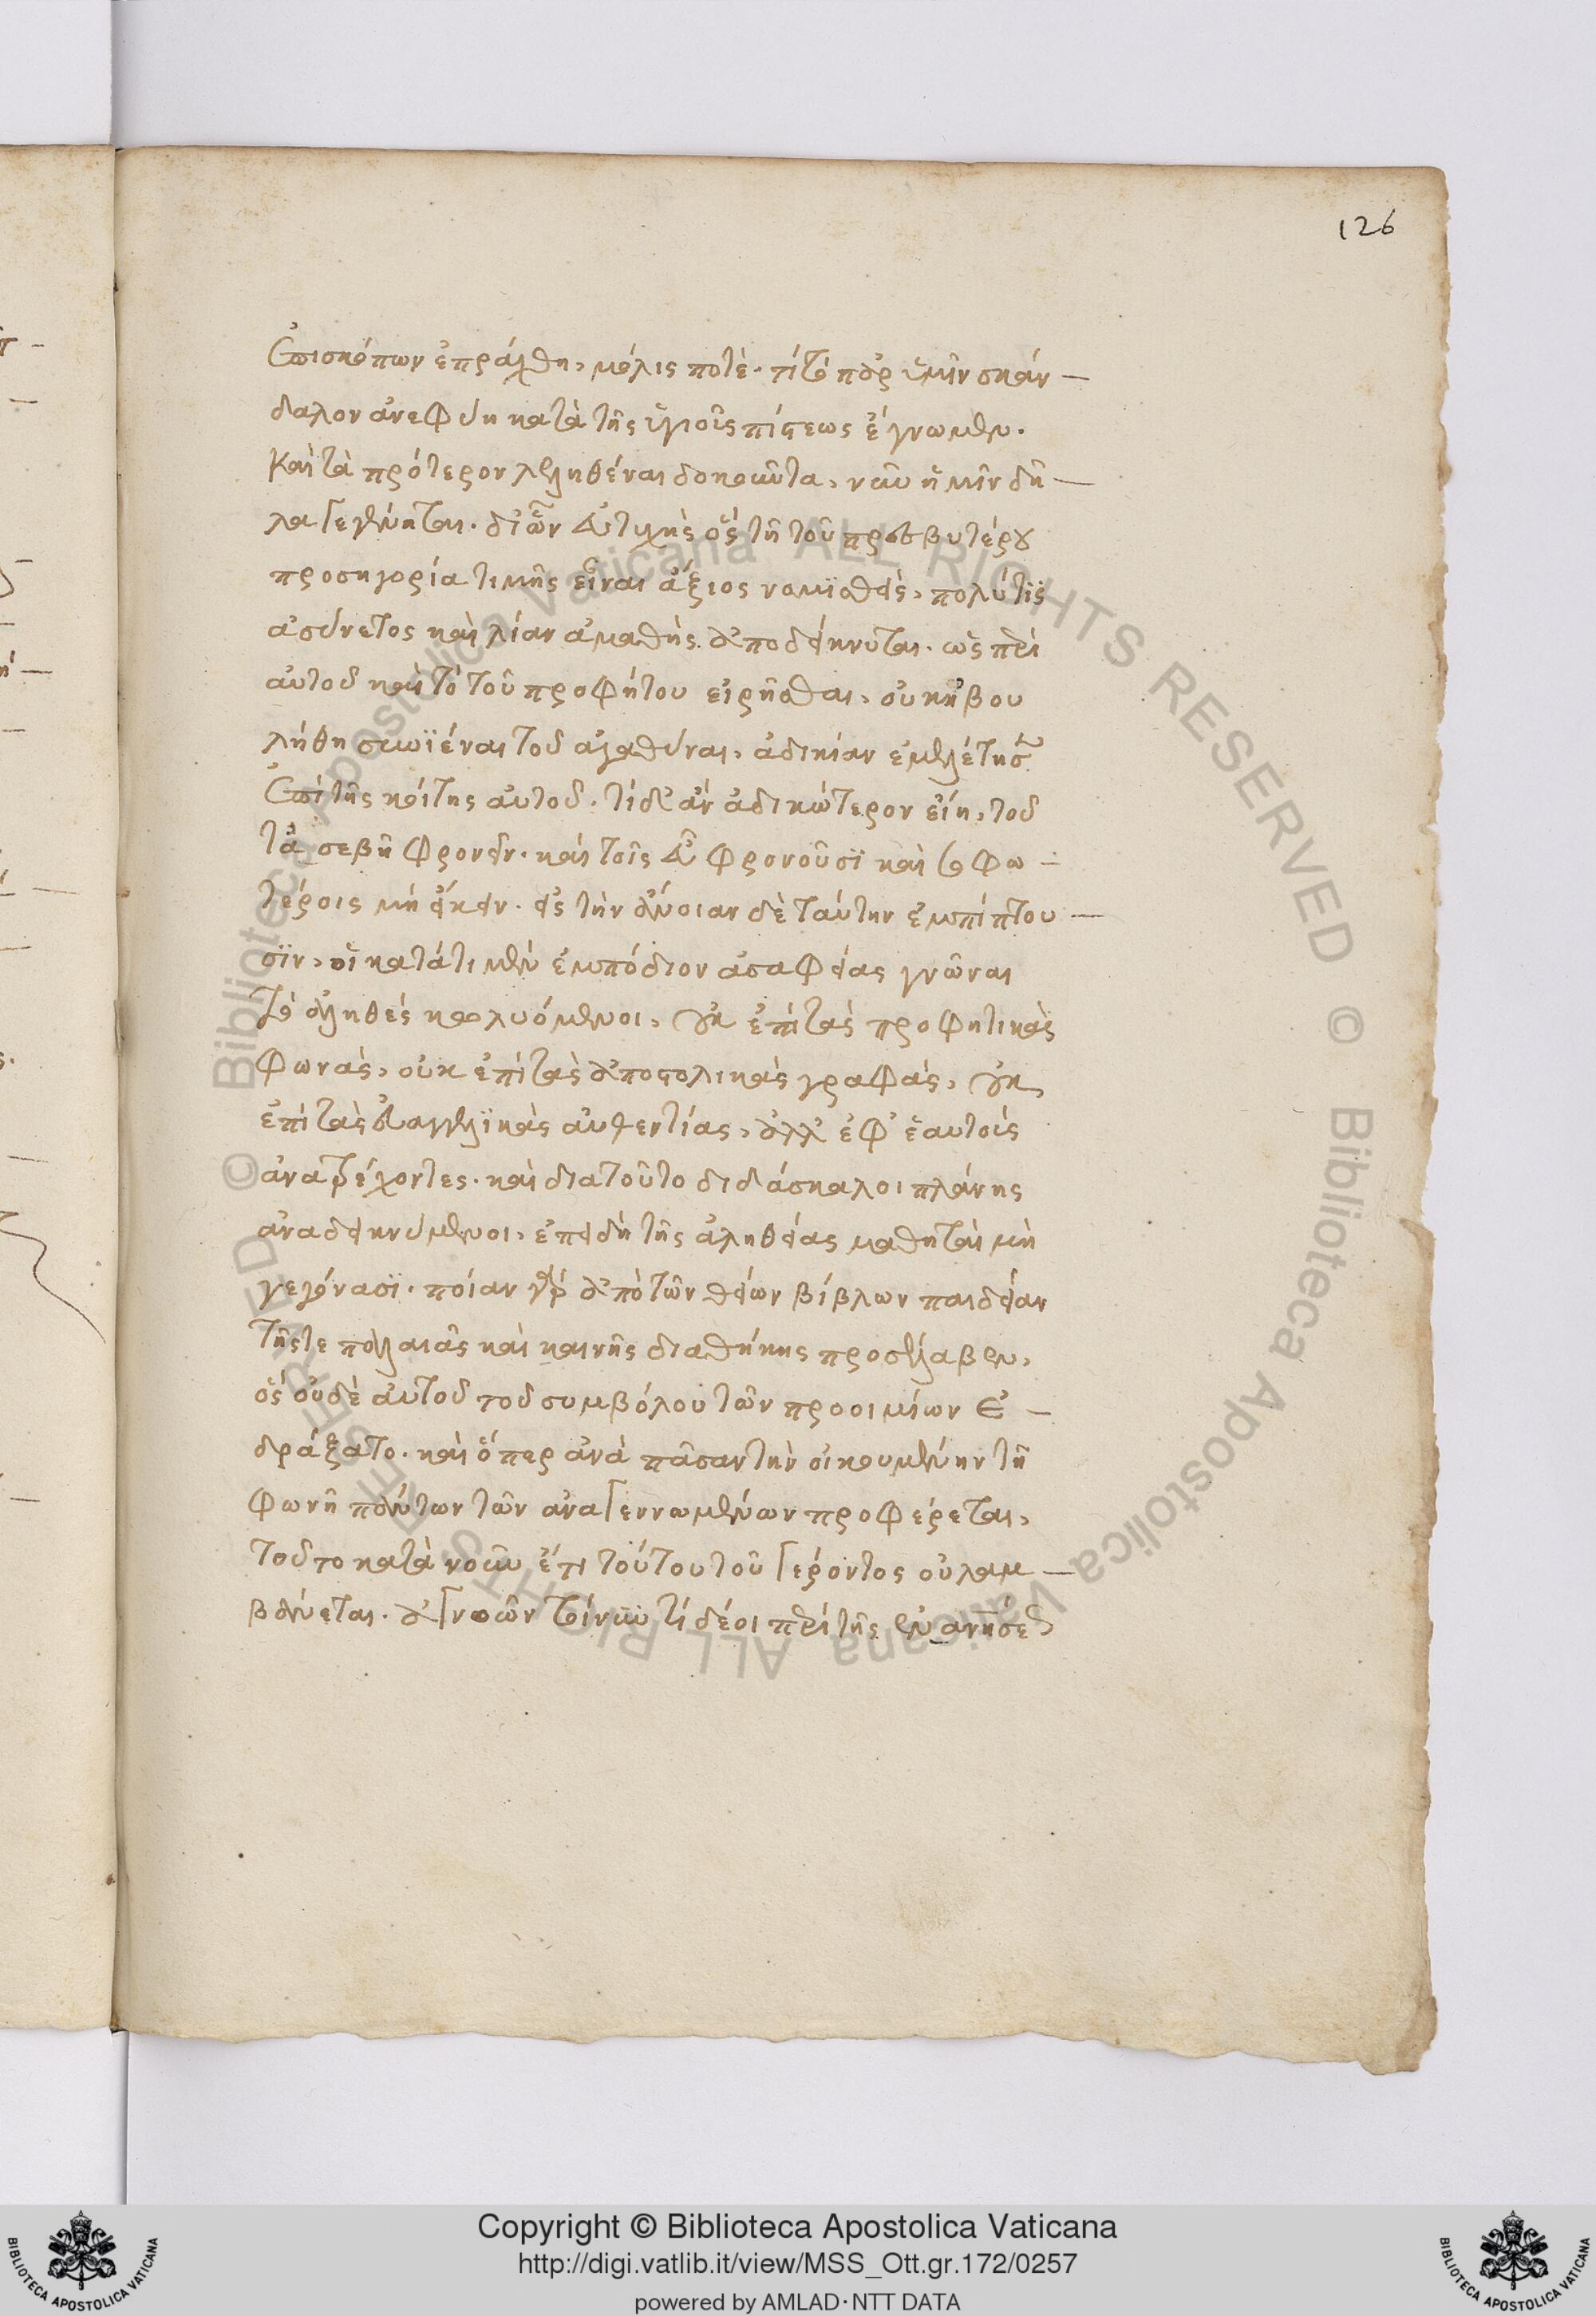 126
ἐπισκόπων ἐπράχθη, μόλις ποτὲ· τί τὸ παρ ὑμῖν σκάν
δαλον ἀνεφύη κατὰ τῆς ὑγιοῦς πίστεως ἔγνωμεν.
Καὶ τὰ πρότερον λεληθέναι δοκοῦντα, νῦν ἡμῖν δῆ
λα γεγένηται. δι ὧν εὐτυχὴς ὃς τῇ τοῦ πρεσβυτέρου
προσηγορία τιμῆς εἶναι ἄξιος νομϊσθεὶς, πολύ τϊς
ἀσύνετος καὶ λίαν ἀμαθὴς ἀποδείκνυται. ὡς περὶ
αὐτοῦ καὶ τὸ τοῦ προφήτου εἰρῆσθαι, οὐκ ἠβου
λήθη συνϊέναι τοῦ ἀγαθύναι, ἀδικίαν ἐμελέτησεν
ἐπὶ τῆς κοίτης αὐτοῦ. τί δ' ἂν ἀδικώτερον εἴη, τοῦ
τὰ σεβῆ φρονεῖν. καὶ τοῖς εὖ φρονοῦσϊ καὶ σοφω
τέροις μὴ εἴκειν. εἰς τὴν ἄνοιαν δὲ ταύτην ἐμπίπτου
σϊν, οἳ κατά τι μὲν ἐμπόδιον ἀσαφείας γνῶναι
τὸ ἀληθὲς κωλυόμενοι, οὐκ ἐπὶ τὰς προφητικὰς
φωνὰς, οὐκ ἐπὶ τὰς ἀποστολικὰς γραφὰς, οὐκ
ἐπὶ τὰς εὐαγγελϊκὰς αὐθεντίας, ἀλλ' ἐφ' ἑαυτοὺς
ἀνατρέχοντες. καὶ διατοῦτο διδάσκαλοι πλάνης
ἀναδεικνύμενοι, ἐπειδὴ τῆς ἀληθείας μαθηταὶ μὴ
γεγόνασϊ. ποίαν γὰρ ἀπὸ τῶν θείων βίβλων παιδείαν
τῆς τε παλαιᾶς καὶ καινῆς διαθήκης προσέλαβεν,
ὃς οὐδὲ αὐτοῦ τοῦ συμβόλου τῶν προοιμίων ἐ
δράξατο. καὶ ὅπερ ἀνὰ πᾶσαν τὴν οἰκουμένην τῇ
φωνῇ πάντων τῶν ἀναγεννωμένων προφέρεται,
τοῦτο κατὰ νοῦν ἔτι τούτου τοῦ γέροντος οὐ λαμ
βάνεται. ἀγνοῶν τοίνυν τί δέοι περὶ τῆς ἐνανθρωπήσεως
Copyright © Biblioteca Apostolica Vaticana
http://digi.vatlib.it/view/MSS_Ott.gr.172/0257
powered by AMLAD·NTT DATA